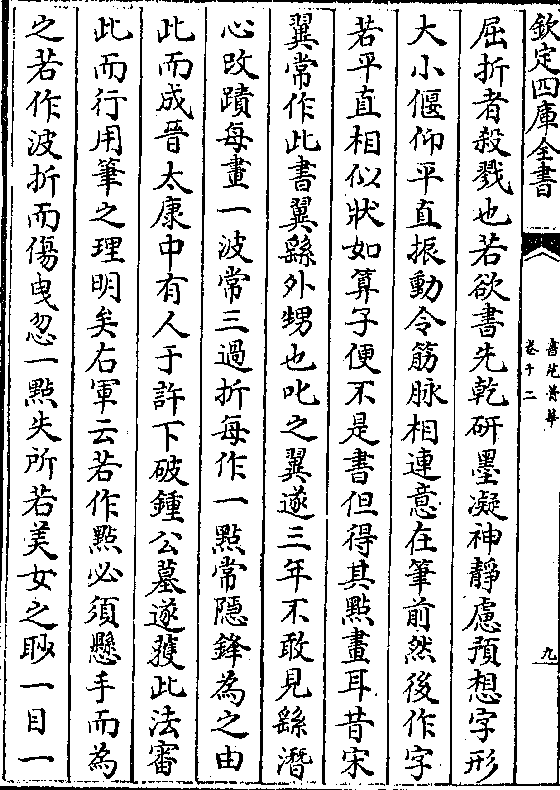 欽定四庫全書
書苑菁華
卷十二
九
屈折者殺戮也若欲書先乾研墨凝神靜慮預想字形
大小偃仰平直振動令筋脉相連意在筆前然後作字
若平直相似狀如算子便不是書但得其點畫耳昔宋
翼常作此書翼繇外甥也叱之翼遂三年不敢見繇潛
心改蹟每畫一波常三過折每作一點常隱鋒為之由
此而成晉太康中有人于許下破鍾公墓遂獲此法審
此而行用筆之理明矣右軍云若作點必須懸手而為
之若作波折而傷曳忽一點失所若美女之眇一目一